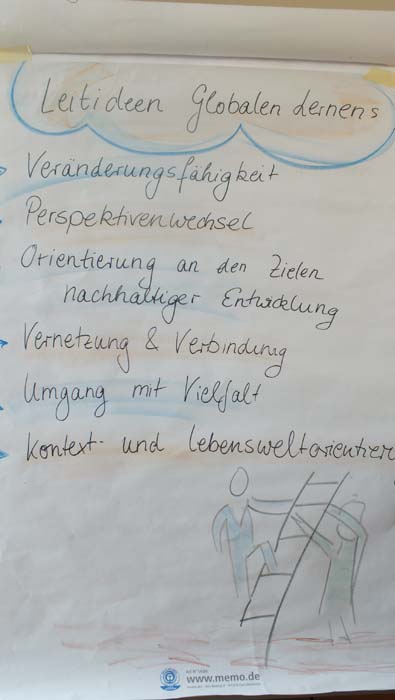 Leitideen Globalen Lernens
Veränderungsfähigkeit
Perspektivenwechsel
Orientierung an den Zielen
nachhaltiger Entwicklung
Vernetzung & Verbindung
Umgang mit Vielfalt
Kontext- und Lebensweltorientier
www.memo.de